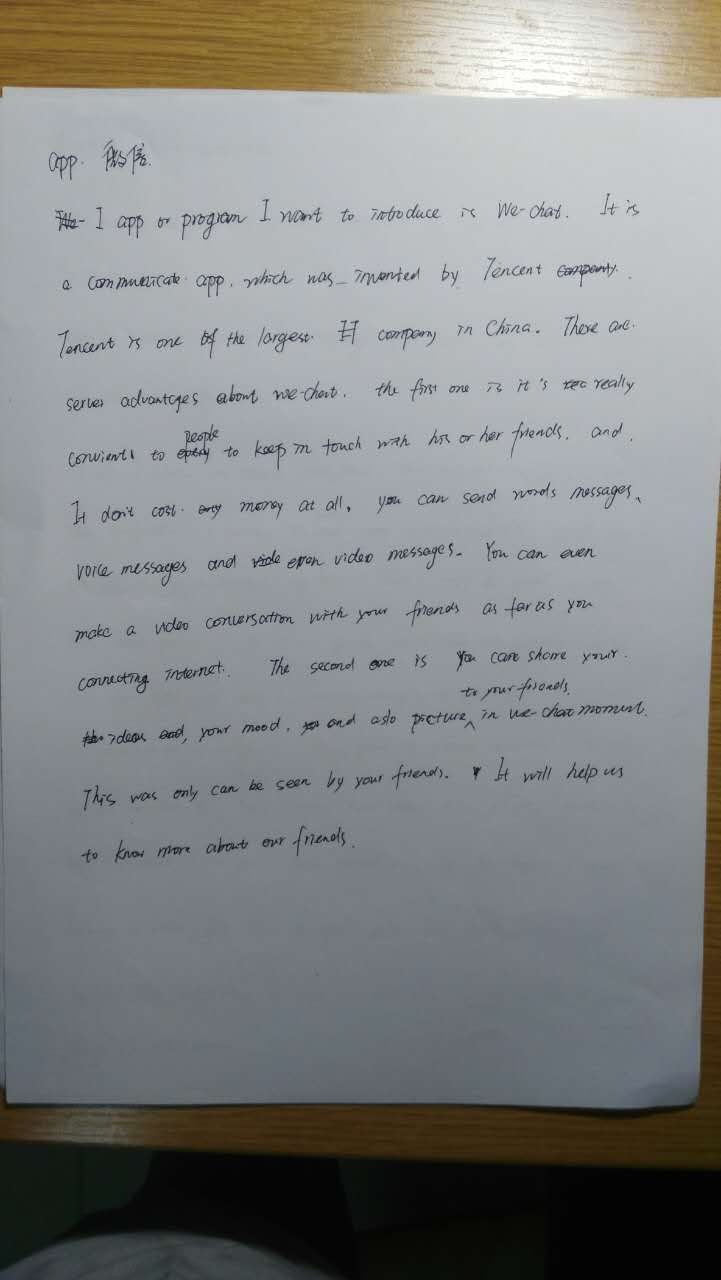 app. 微信.
I app or program I want to introduce is We-chat. It is
a communicate app. which was invented by Tencent company.
Tencent is one of the largest IT company in China. There are
server advantages about we-chat. the first one is it's really
people
convient to to keep in touch with his or her friends. and.
It don't cost any money at all, you can send words messages,
voice messages and even video messages. You can even
make a video conversation with your friends as far as you
connecting internet. The second one is you can share your
to your friends
ideas and, your mood, and aslo picture, in we-chat moment.
This was only can be seen by your friends. It will help us
to know more about our friends.